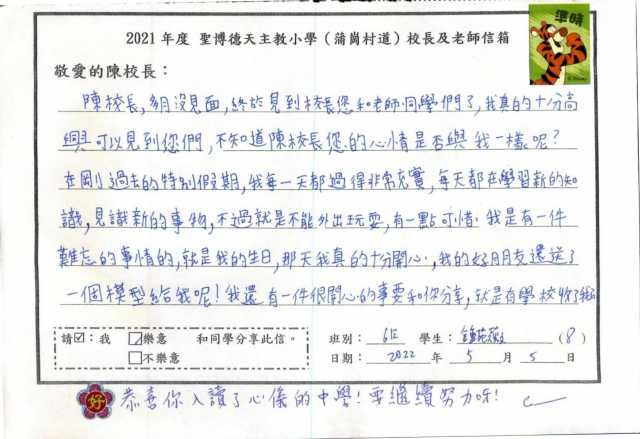 準時
2021年度 聖博德天主教小學（蒲崗村道）校長及老師信箱
敬愛的陳校長：
陳校長，多月沒見面，終於見到校長您和老師、同學們了，我真的十分高
興可以見到您們，不知道陳校長您的心情是否與我一樣呢？
在剛剛過去的特別假期，我每一天都過得非常充實，每天都在學習新的知
識，見識新的事物，不過就是不能外出玩耍，有一點可惜。我是有一件
難忘的事情的，就是我的生日，那天我真的十分開心，我的好朋友還送了
一個模型給我呢！我還有一件很開心的事要和你分享，就是有學校收了我
請☑：我 ☑樂意 和同學分享此信。 班別： 6E 學生： （8）
□不樂意 日期： 2022 年 5 月 5 日
好 恭喜你入讀了心儀的中學！要繼續努力呀！